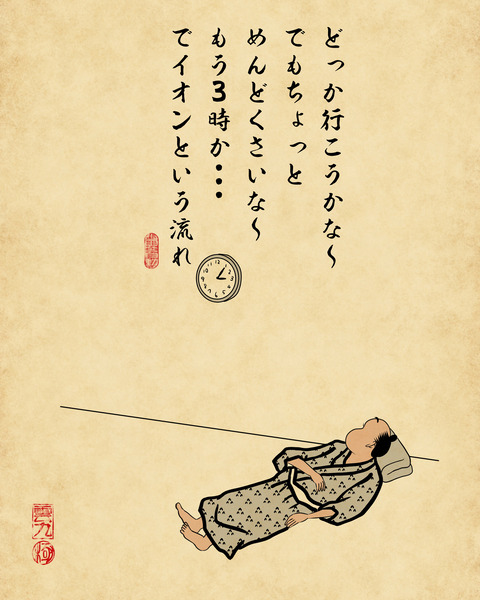 どっか行こうかな〜
でもちょっと
めんどくさいな〜
もう3時か・・・
でイオンという流れ